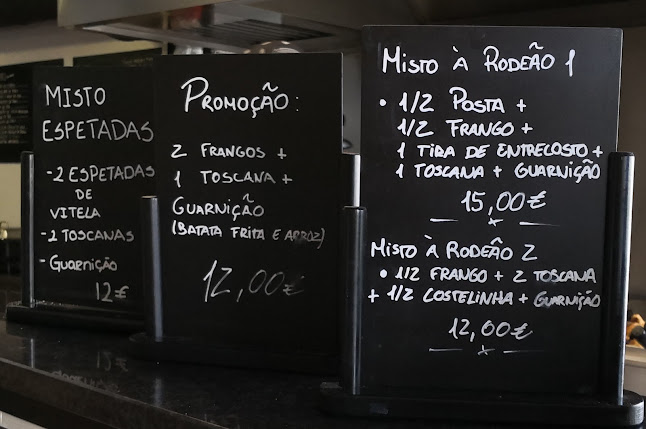 MISTO
ESPETADAS
- 2 ESPETADAS
DE
VITELA
- 2 TOSCANAS
- GUARNIÇÃO
12€
PROMOÇÃO:
2 FRANGOS +
1 TOSCANA +
GUARNIÇÃO
(BATATA FRITA E ARROZ)
12,00€
MISTO À RODEÃO 1
• 1/2 POSTA +
1/2 FRANGO +
1 TIRA DE ENTRECOSTO +
1 TOSCANA + GUARNIÇÃO
15,00€
MISTO À RODEÃO 2
• 1/2 FRANGO + 2 TOSCANA
+ 1/2 COSTELINHA + GUARNIÇÃO
12,00€